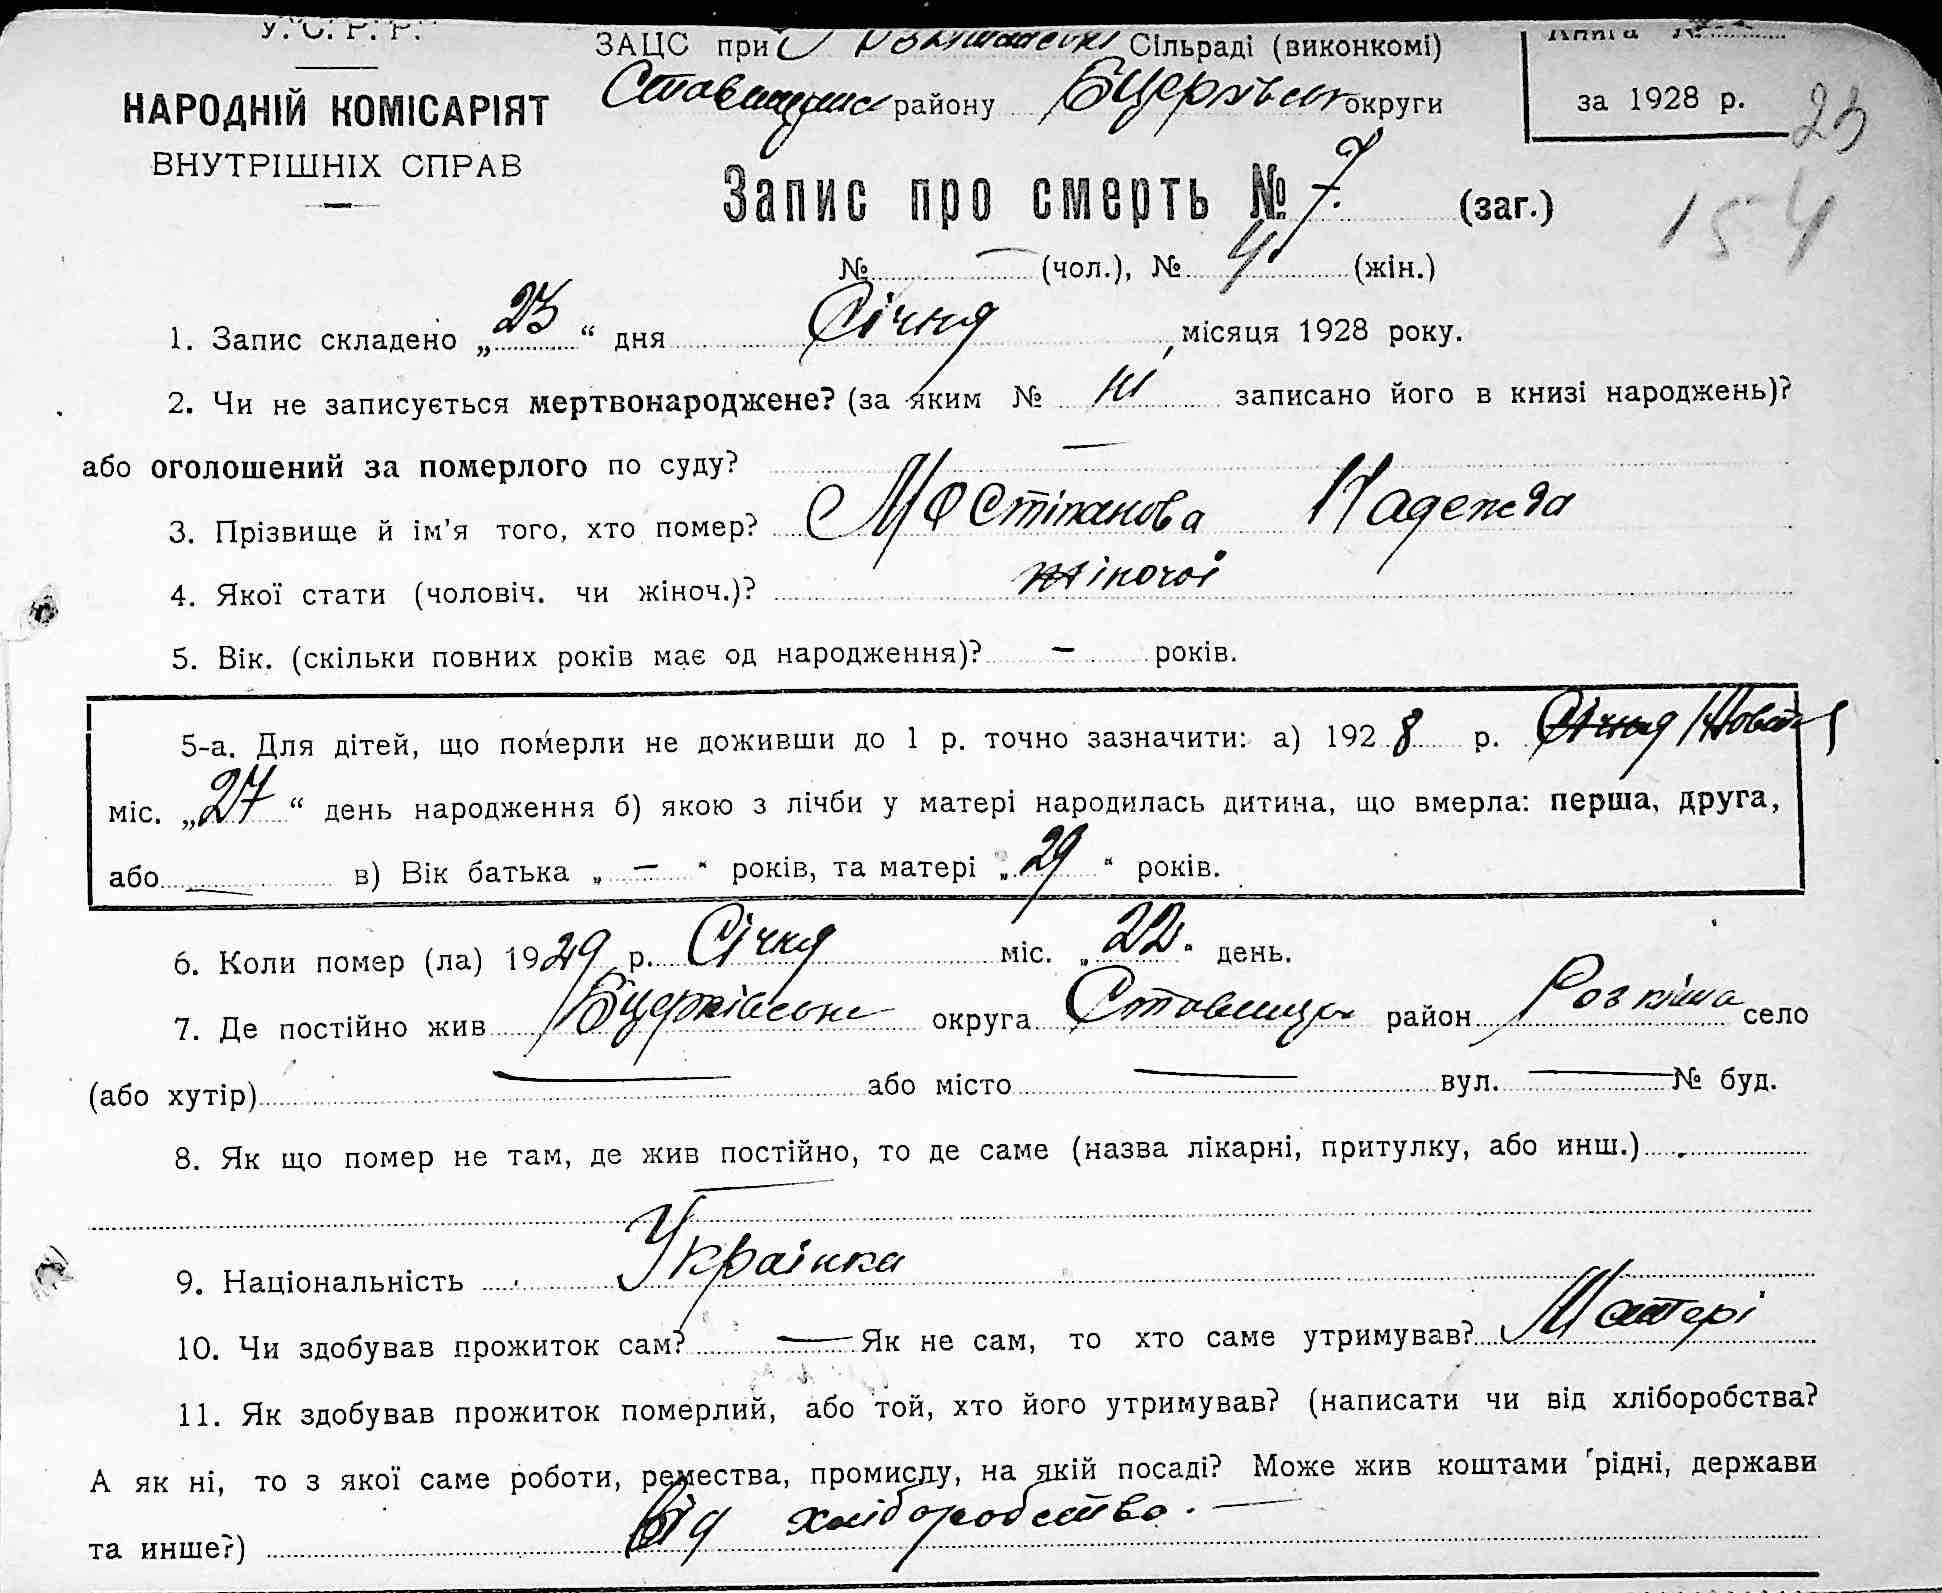 У. С. Р. Р.
НАРОДНІЙ КОМІСАРІЯТ
ВНУТРІШНІХ СПРАВ
ЗАЦС при Сільраді (виконкомі)
району Бцерківськ округи
Книга №
за 1928 р.
23
154
Запис про смерть № 7. (заг.)
№ — (чол.), № 4 (жін.)
1. Запис складено „23“ дня Січня місяця 1928 року.
2. Чи не записується мертвонароджене? (за яким № ні записано його в книзі народжень)?
або оголошений за померлого по суду? —
3. Прізвище й ім'я того, хто помер? Надежда
4. Якої стати (чоловіч. чи жіноч.)? жіночоі
5. Вік. (скільки повних років має од народження)? — років.
5-а. Для дітей, що померли не доживши до 1 р. точно зазначити: а) 1928 р. Січня
міс. „27“ день народження б) якою з лічби у матері народилась дитина, що вмерла: перша, друга,
або — в) Вік батька „—“ років, та матері „29“ років.
6. Коли помер (ла) 1929 р. Січня міс. „22“ день.
7. Де постійно жив Бцерківська округа Ставищан район Розкішна село
(або хутір) — або місто — вул. — № буд.
8. Як що помер не там, де жив постійно, то де саме (назва лікарні, притулку, або инш.)
—
9. Національність Украінка
10. Чи здобував прожиток сам? — Як не сам, то хто саме утримував? Матері
11. Як здобував прожиток померлий, або той, хто його утримував? (написати чи від хліборобства?
А як ні, то з якої саме роботи, ремества, промислу, на якій посаді? Може жив коштами рідні, держави
та инше?) Від хліборобство. —